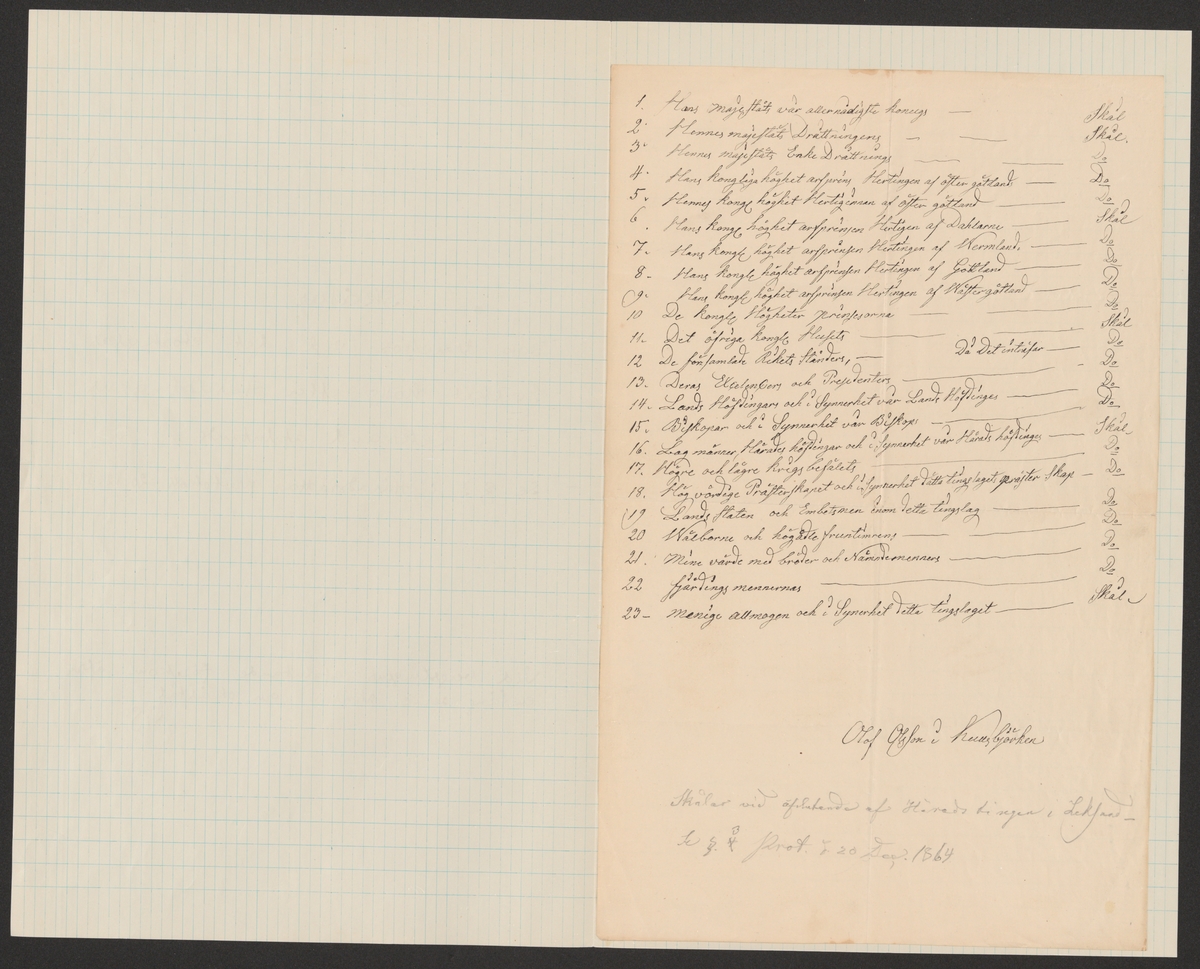 1. Hans majestäts vår allernådigste konugs — Skål
2. Hennes majestäts Drättningens — — Skål.
3. Hennes majestäts Enke Drättnings — — Do
4. Hans kongliga höghet arfprins Hertingen af öster götland — Do
5. Hennes kongl höghet Hertiginnan af öster götland — Do
6. Hans kongl höghet arfprinsen Hertigen af Dahlarne — Skål
7. Hans kongl höghet arfprinsen Hertingen af Wermland — Do
8. Hans kongl höghet arfprinsen Hertingen af Gottland — Do
9. Hans kongl höghet arfprinsen Hertingen af Wästergötland — Do
10 De kongl Högheter prinsesorna — — Do
11. Det öfriga kongl Husets — — Skål
12 De församlade Rikets Ständers, — Då Det inträfar — Do
13. Deras Exelencers och Presidenters — Do
14. Lands Höfdingars och i Synnerhet vår Lands Höfdinges — Do
15. Biskopar och i Synnerhet vår Biskops — Do
16. Lag männer, Härades höfdingar och i Synnerhet vår Härads höfdinges — Skål
17. Högre och lägre krigsbefälets — Do
18. Hög vördige Prästerskapet och i Synnerhet detta tingslaget präster Skap — Do
19 Lands Staten och Embetsmen inom detta tingslag — Do
20 Wälborne och högädle fruntimrens — — Do
21. Mine värde med bröder och Nämndemenners — Do
22 fjärdings mennernas — Do
23 — menige allmogen och i Synerhet detta tingslaget — Skål
Olof Olsson i
Skålar vid afslutande af Härads tingen i Leksand —
Se §. Prot. 20 Dec. 1864